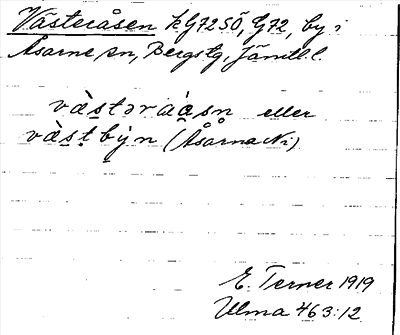 Västeråsen kG72SÖ, G72, by i
Åsarne sn, Bergs tg, Jämtl. l.
västəråasn eller
västbyn (Åsarna Ni)
E. Terner 1919
Ulma 463:12